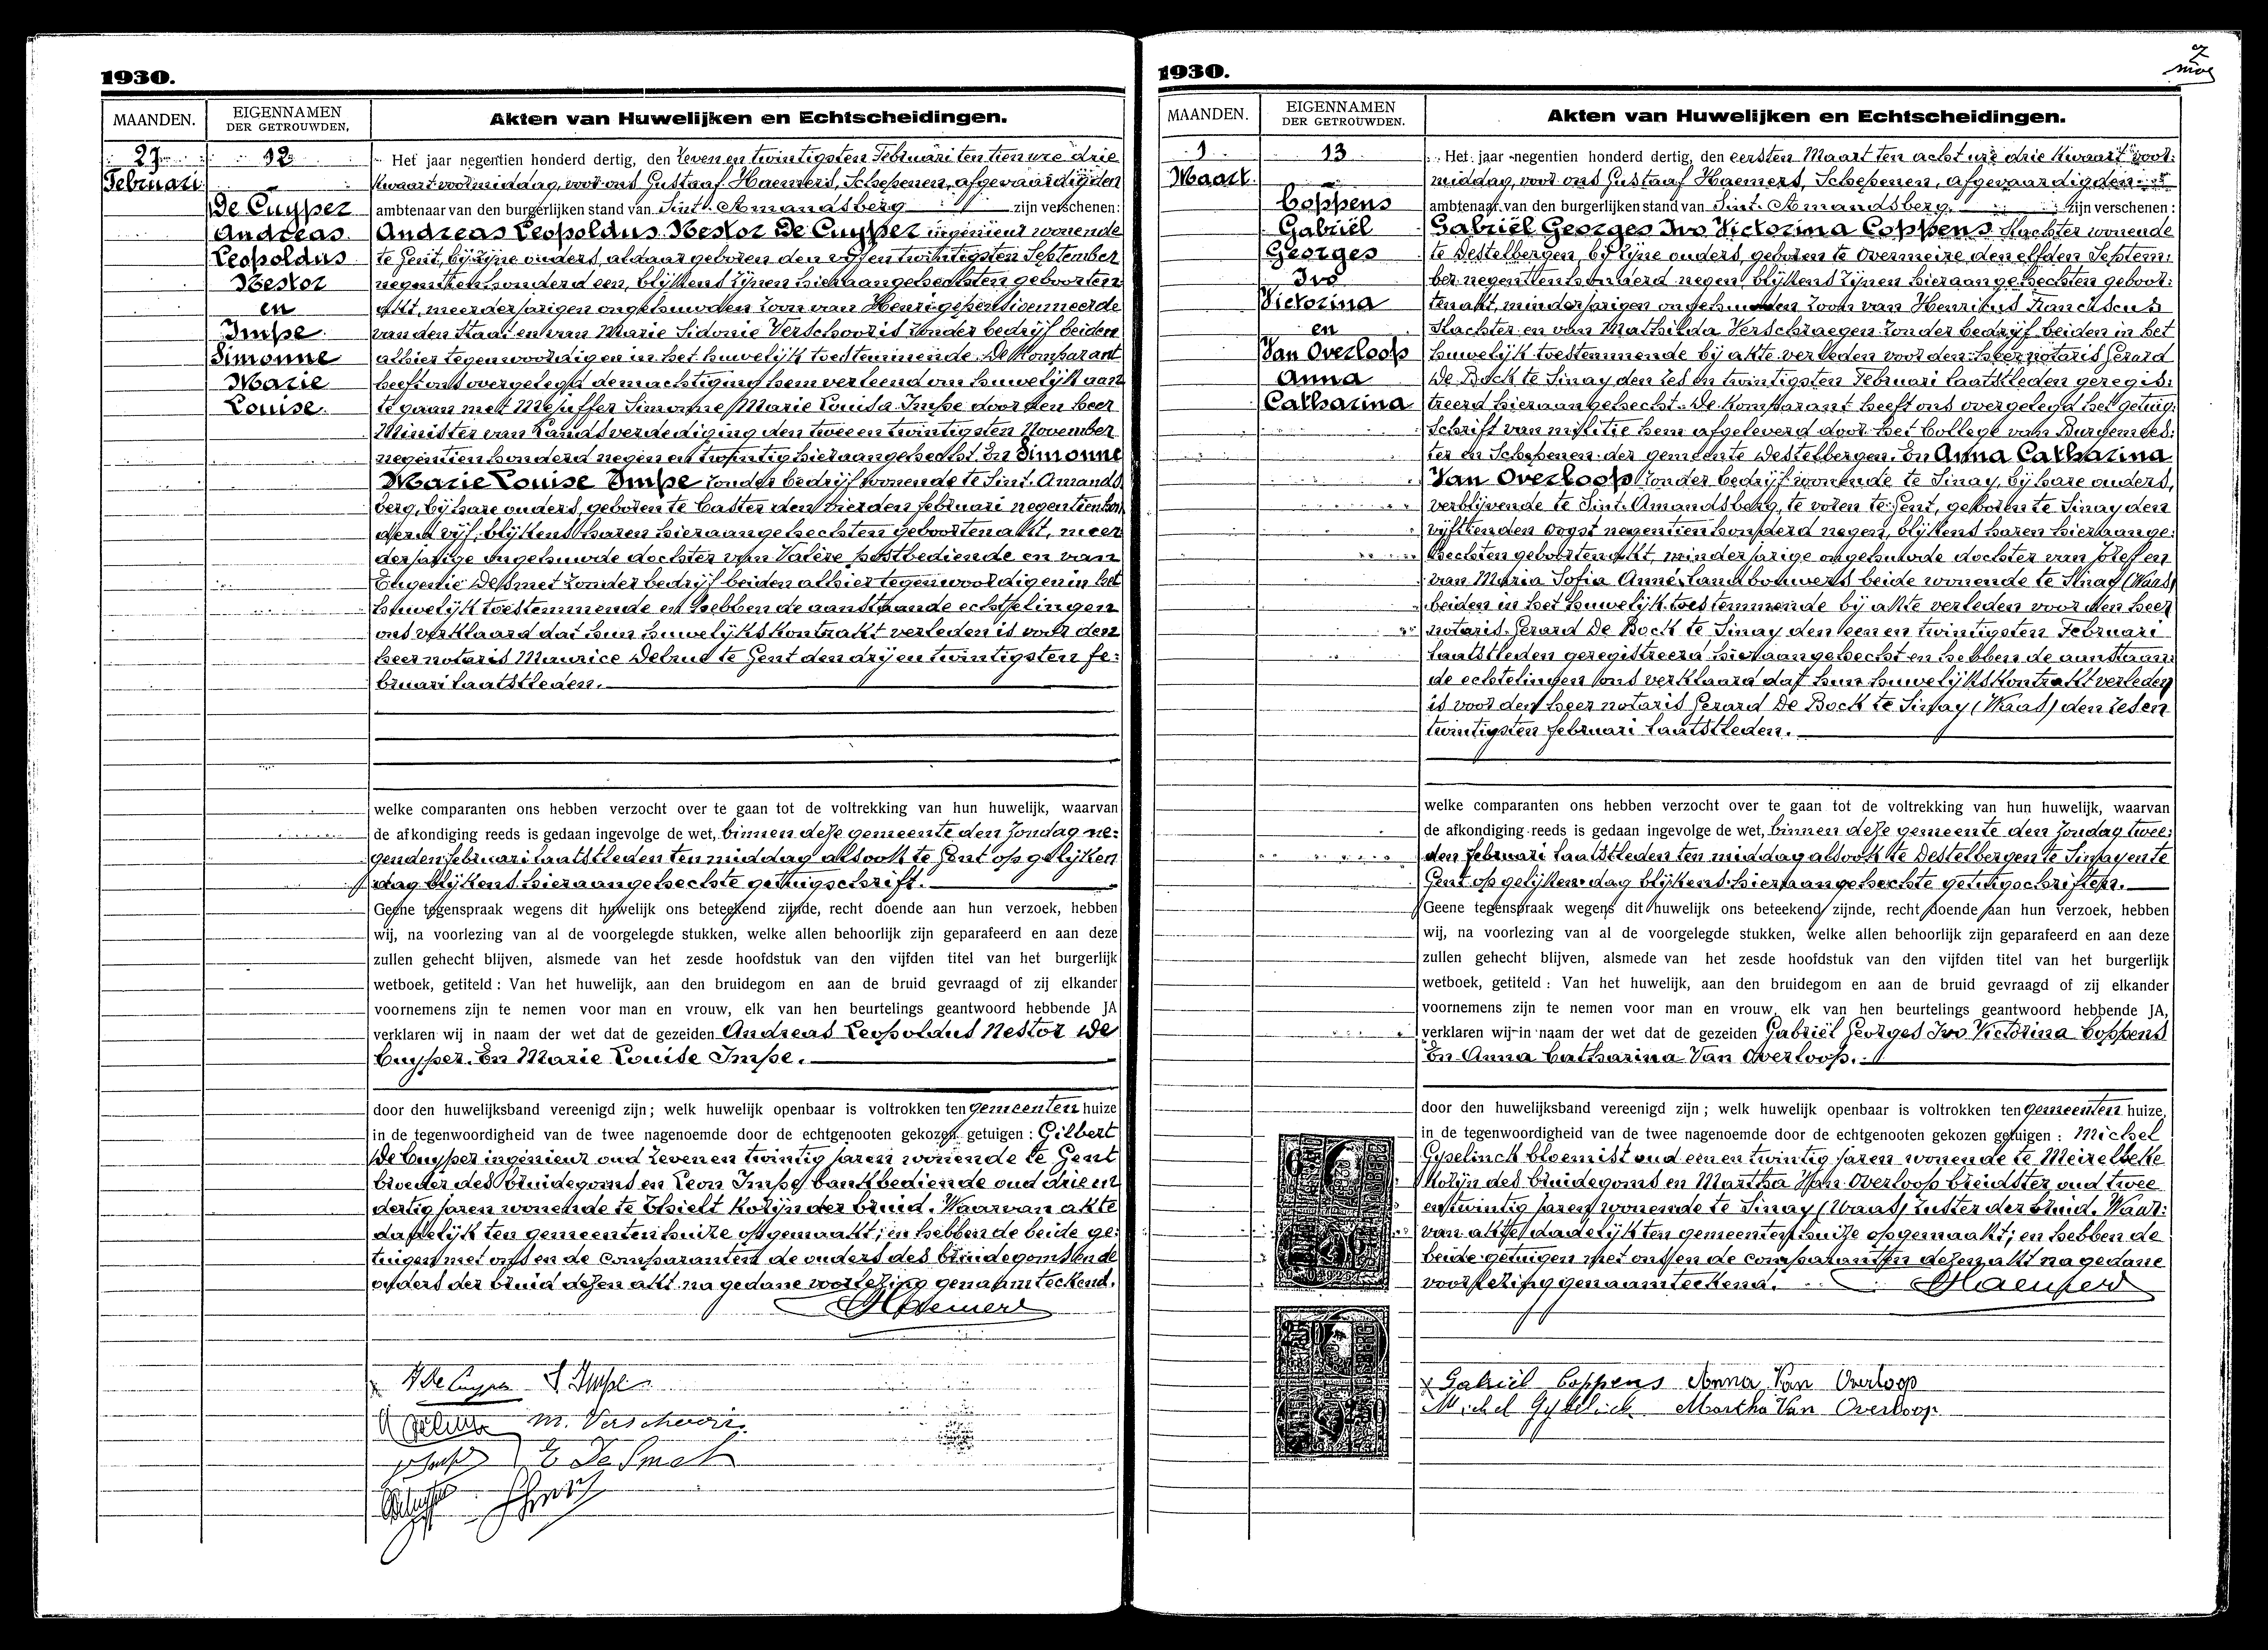 1930.
MAANDEN.
EIGENNAMEN
DER GETROUWDEN.
Akten van Huwelijken en Echtscheidingen.
27
Februari
12
De Cuyper
Andreas
Leopoldus
Nestor
en
Impe
Simonne
Marie
Louise.
Het jaar negentien honderd dertig, den zeven en twintigsten Februari ten tien ure drie
kwaart voormiddag, voor ons Gustaaf Haemers, Schepenen, afgevaardigden
ambtenaar van den burgerlijken stand van Sint-Amandsberg zijn verschenen:
Andreas Leopoldus Nestor De Cuyper ingenieur wonende
te Gent, bij zijne ouders, aldaar geboren den twintigsten September
negentienhonderd een, blijkens zijnen hieraangehechten geboorten
akt, meerderjarigen ongehuwden zoon van Henri gepensioenneerde
van den Staat en van Marie Sidonie Verschooris zonder bedrijf beiden
alhier tegenwoordig en in het huwelijk toestemmende. De komparant
heeft ons overgelegd de machtiging hem verleend om huwelijk aan
te gaan met Mejuffer Simonne Marie Louisa Impe door den heer
Minister van Landsverdediging den twee en twintigsten November
negentienhonderd negen en twintig hieraangehecht. En Simonne
Marie Louise Impe zonder bedrijf wonende te Sint-Amands
berg, bij hare ouders, geboren te Caster den vierden februari negentienhon
derd vijf, blijkens haren hieraangehechten geboortenakt, meer
derjarige ongehuwde dochter van Valère postbediende en van
Eugenie Desmet zonder bedrijf beiden alhier tegenwoordig en in het
huwelijk toestemmende en hebben de aanstaande echtelingen
ons verklaard dat hun huwelijkskontrakt verleden is voor den
heer notaris Maurice Debrue te Gent den drij en twintigsten fe:
bruari laatstleden.
welke comparanten ons hebben verzocht over te gaan tot de voltrekking van hun huwelijk, waarvan
de afkondiging reeds is gedaan ingevolge de wet, binnen deze gemeente den Zondag ne:
genden februari laatstleden ten middag alsook te Gent op gelijken
dag blijkens hieraangehechte getuigschrift.
Geene tegenspraak wegens dit huwelijk ons beteekend zijnde, recht doende aan hun verzoek, hebben
wij, na voorlezing van al de voorgelegde stukken, welke allen behoorlijk zijn geparafeerd en aan deze
zullen gehecht blijven, alsmede van het zesde hoofdstuk van den vijfden titel van het burgerlijk
wetboek, getiteld : Van het huwelijk, aan den bruidegom en aan de bruid gevraagd of zij elkander
voornemens zijn te nemen voor man en vrouw, elk van hen beurtelings geantwoord hebbende JA
verklaren wij in naam der wet dat de gezeiden Andreas Leopoldus Nestor De
Cuyper. En Marie Louise Impe.
door den huwelijksband vereenigd zijn ; welk huwelijk openbaar is voltrokken ten gemeenten huize
in de tegenwoordigheid van de twee nagenoemde door de echtgenooten gekozen getuigen : Gilbert
De Cuyper ingenieur oud zeven en twintig jaren wonende te Gent
broeder des bruidegoms en Leon Impe bankbediende oud drie en
dertig jaren wonende te Thielt kozijn der bruid. Waarvan akte
dadelijk ten gemeentenhuize opgemaakt; en hebben de beide ge:
tuigen met ons en de comparanten de ouders des bruidegoms en de
ouders der bruid dezen akt na gedane voorlezing genaamteekend.
Haemers
A De Cuyper S Impe
M. Verschooris
E De Smet
1930.
MAANDEN.
EIGENNAMEN
DER GETROUWDEN.
Akten van Huwelijken en Echtscheidingen.
1
Maart
13
Coppens
Gabriël
Georges
Ivo
Victorina
en
Van Overloop
Anna
Catharina
Het jaar negentien honderd dertig, den eersten Maart ten acht ure drie kwaart voor:
middag, voor ons Gustaaf Haemers, Schepenen, afgevaardigden
ambtenaar van den burgerlijken stand van Sint-Amandsberg. zijn verschenen :
Gabriël Georges Ivo Victorina Coppens slachter wonende
te Destelbergen, bij zijne ouders, geboren te Overmeire den elfden Septem:
ber negentienhonderd negen, blijkens zijnen hieraangehechten geboor:
tenakt, minderjarigen ongehuwden zoon van Henricus Franciscus
slachter en van Mathilda Verschraegen zonder bedrijf beiden in het
huwelijk toestemmende bij akte verleden voor den heer notaris Gerard
De Bock te Sinay den zes en twintigsten Februari laatstleden geregis:
treerd hieraangehecht. De komparant heeft ons overgelegd het getuig:
schrift van militie hem afgeleverd door het College van Burgemees:
ter en Schepenen der gemeente Destelbergen. En Anna Catharina
Van Overloop zonder bedrijf wonende te Sinay, bij hare ouders,
verblijvende te Sint-Amandsberg, te voren te Gent, geboren te Sinay den
vijftienden Oogst negentienhonderd negen, blijkens haren hieraange:
hechten geboortenakt, minderjarige ongehuwde dochter van Jozef en
van Maria Sofia Anné, landbouwers beide wonende te Sinay (Waas)
beiden in het huwelijk toestemmende bij akte verleden voor den heer
notaris Gerard De Bock te Sinay den een en twintigsten Februari
laatstleden geregistreerd hieraangehecht en hebben de aanstaan:
de echtelingen ons verklaard dat hun huwelijkskontrakt verleden
is voor den heer notaris Gerard De Bock te Sinay (Waas) den zes en
twintigsten februari laatstleden.
welke comparanten ons hebben verzocht over te gaan tot de voltrekking van hun huwelijk, waarvan
de afkondiging reeds is gedaan ingevolge de wet, binnen deze gemeente den Zondag twee:
den februari laatstleden ten middag alsook te Destelbergen te Sinay en te
Gent op gelijken dag blijkens hieraangehechte getuigschriften.
Geene tegenspraak wegens dit huwelijk ons beteekend zijnde, recht doende aan hun verzoek, hebben
wij, na voorlezing van al de voorgelegde stukken, welke allen behoorlijk zijn geparafeerd en aan deze
zullen gehecht blijven, alsmede van het zesde hoofdstuk van den vijfden titel van het burgerlijk
wetboek, getiteld : Van het huwelijk, aan den bruidegom en aan de bruid gevraagd of zij elkander
voornemens zijn te nemen voor man en vrouw, elk van hen beurtelings geantwoord hebbende JA,
verklaren wij in naam der wet dat de gezeiden Gabriël Georges Ivo Victorina Coppens
En Anna Catharina Van Overloop.
door den huwelijksband vereenigd zijn ; welk huwelijk openbaar is voltrokken ten gemeenten huize,
in de tegenwoordigheid van de twee nagenoemde door de echtgenooten gekozen getuigen : Michel
Gyselinck bloemist oud een en twintig jaren wonende te Meirelbeke
kozijn des bruidegoms en Martha Van Overloop breidster oud twee
en twintig jaren wonende te Sinay (Waas) zuster der bruid. Waar:
van akte dadelijk ten gemeentenhuize opgemaakt; en hebben de
beide getuigen met ons en de comparanten dezen akt na gedane
voorlezing genaamteekend. Haemers
Gabriël Coppens Anna Van Overloop
Michel Gyselinck Martha Van Overloop